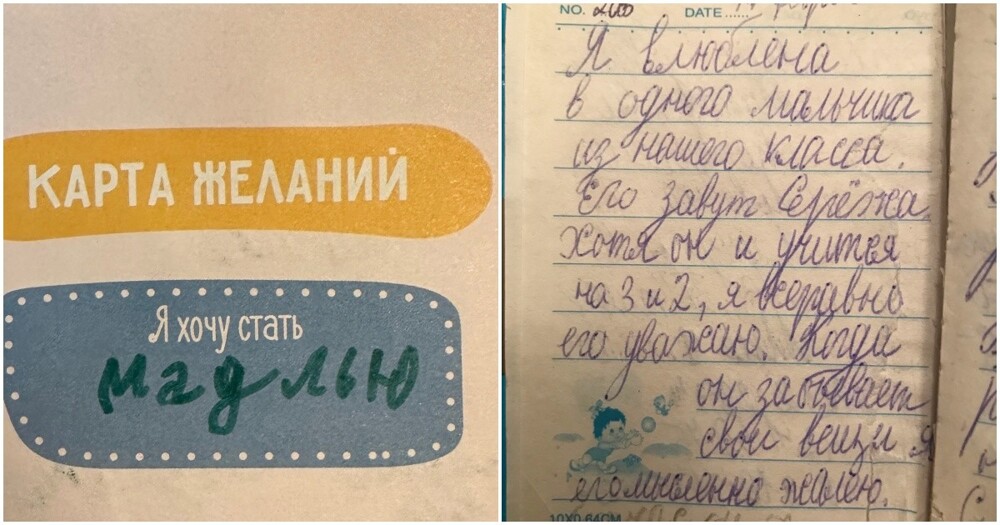 КАРТА ЖЕЛАНИЙ
Я хочу стать
мадлью
NO.
DATE
Я влюблена
в одного мальчика
из нашего класса.
Его завут Серёжа
хотя он и учится
на 3 и 2, я всеравно
его уважаю. Когда
он забывает
свои вещи я
его мысленно жалею.
10X0.64CM